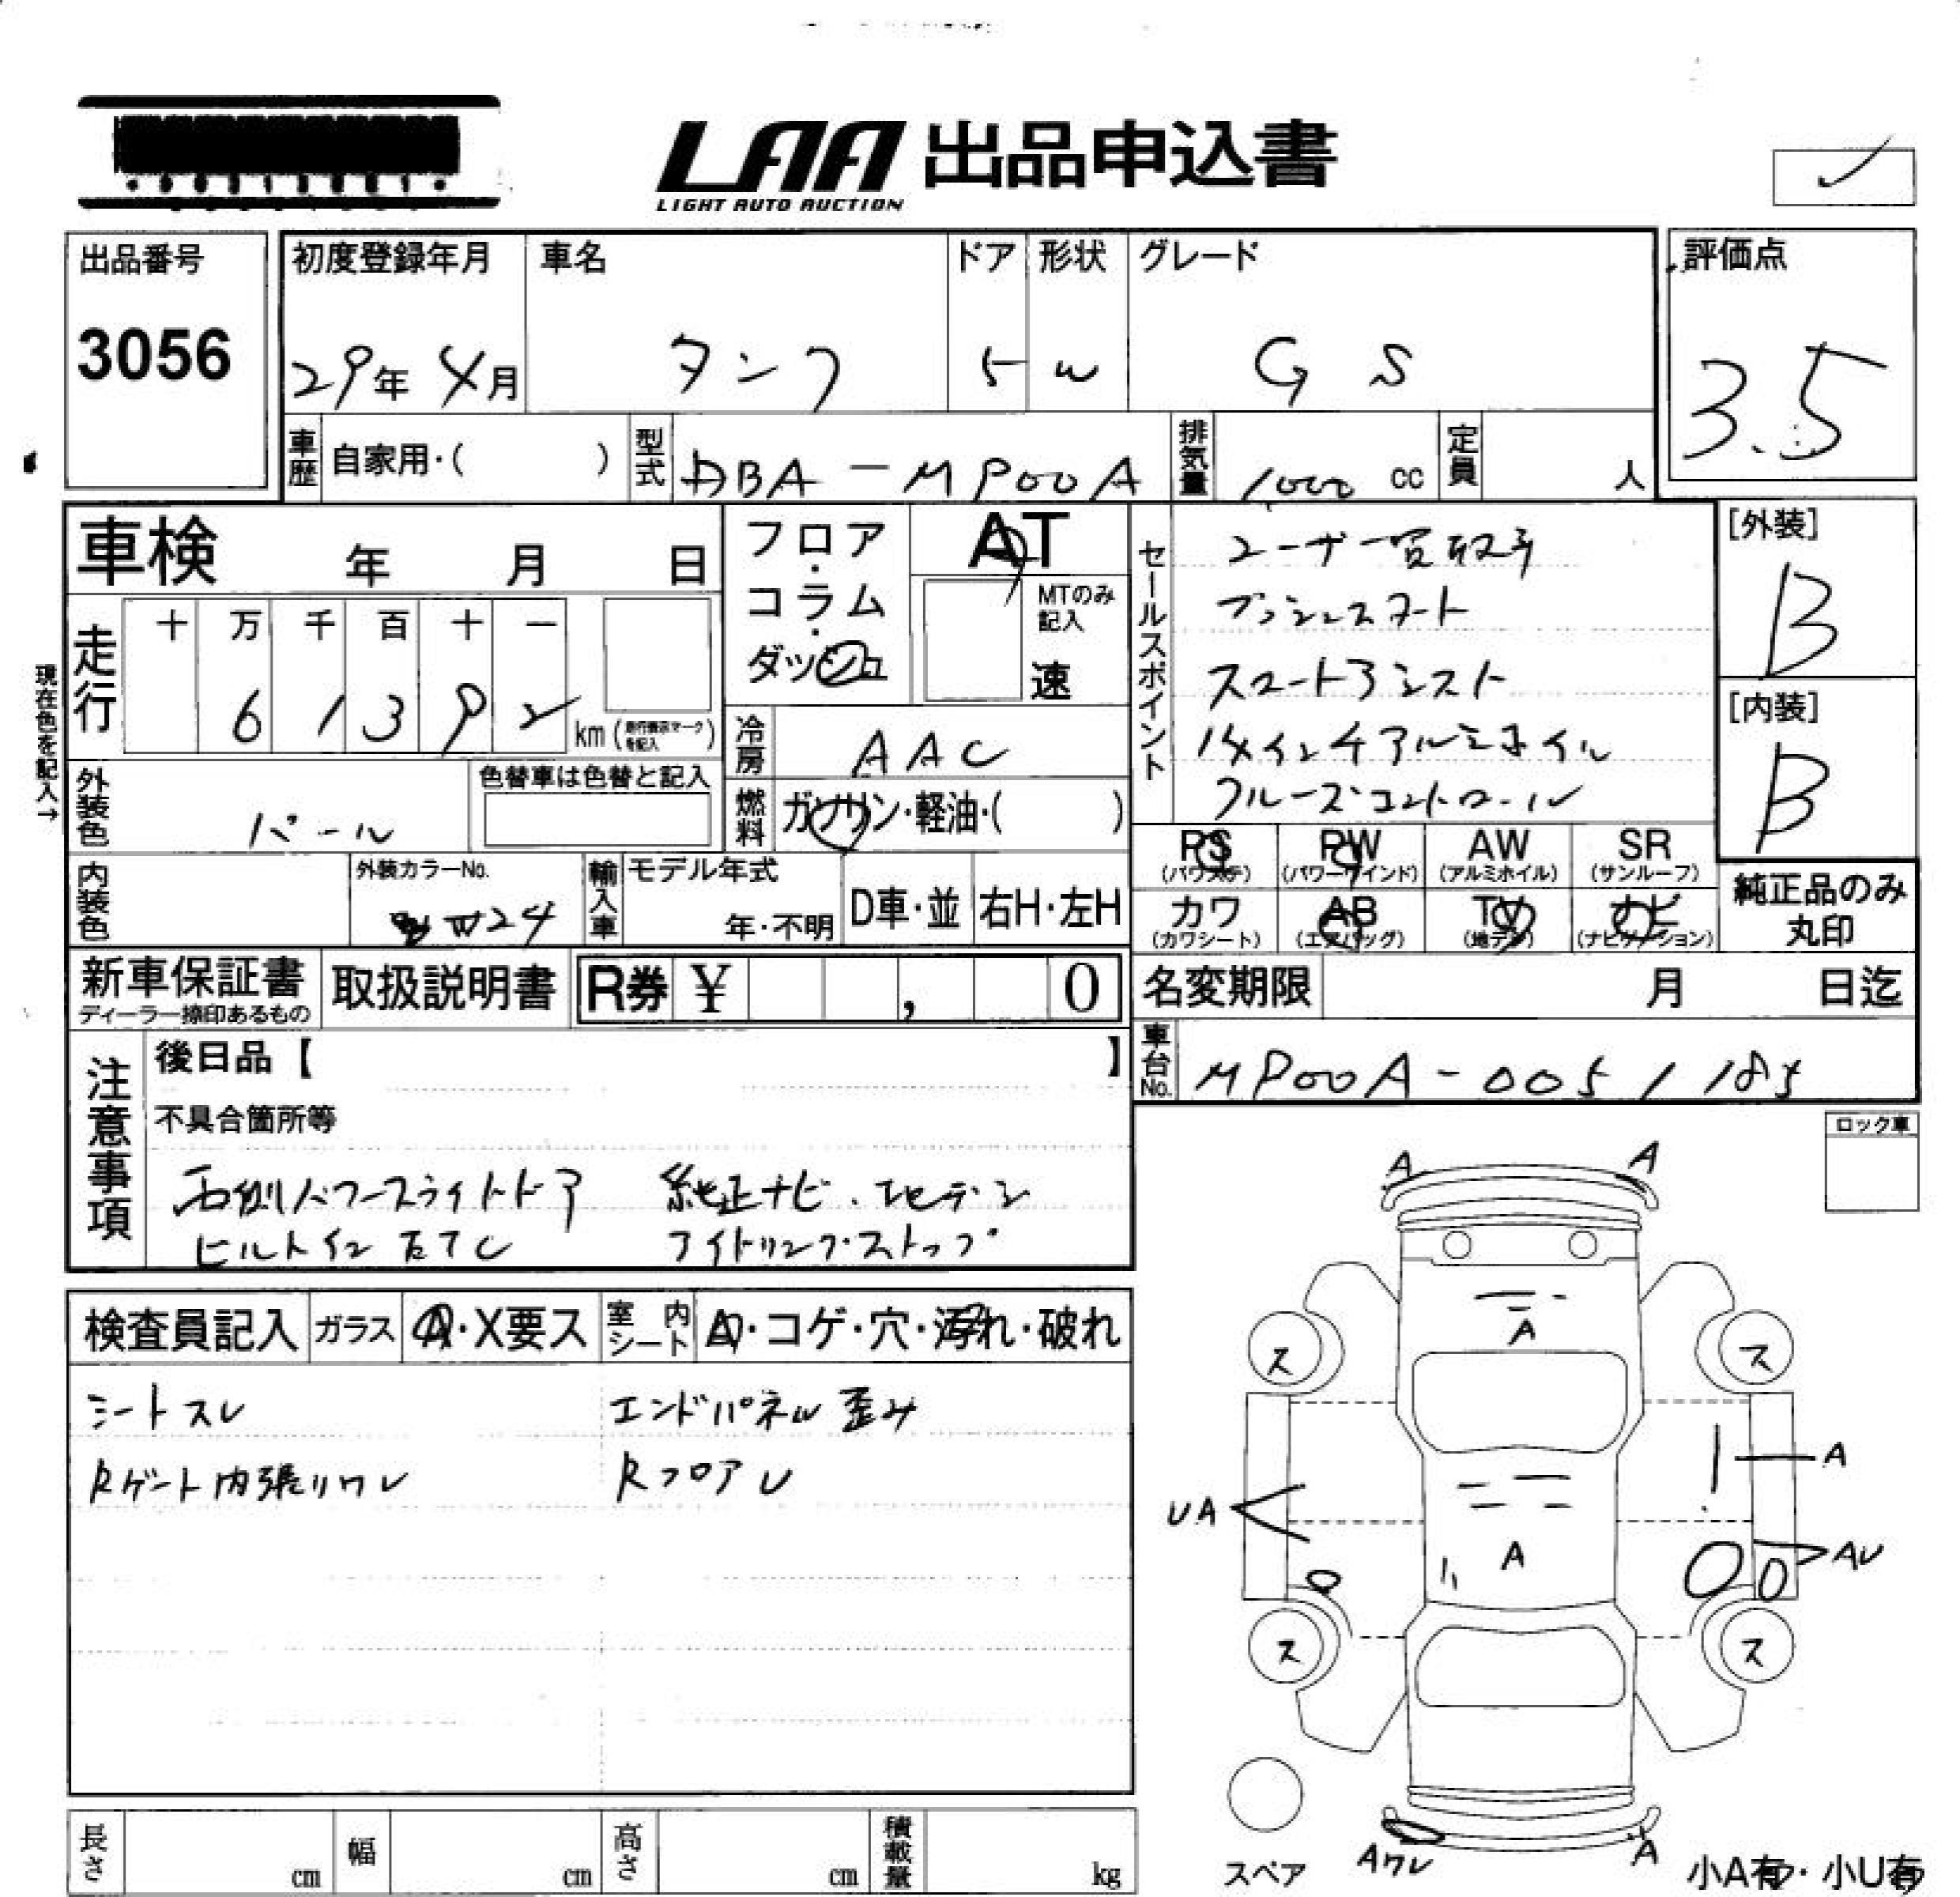 LAA 出品申込書
LIGHT AUTO AUCTION
出品番号
3056
初度登録年月
29年 4月
車名
タンク
ドア
5
形状
W
グレード
G S
評価点
3.5
車歴 自家用・( )
型式 DBA-M900A
排気量 1,000 cc
定員 人
車検 年 月 日
フロア・コラム・ダッシュ
AT
MTのみ記入
速
走行
十 万 千 百 十 一
6 1 3 9 2 km
現在色を記入→
冷房 AAC
燃料 ガソリン・軽油・( )
外装色 パール
色替車は色替と記入
内装色
外装カラーNo.
W24
輸入車
モデル年式
年・不明
D車・並
右H・左H
セールスポイント
ユーザー買取車
プッシュスタート
スマートアシスト
14インチアルミホイル
クルーズコントロール
[外装]
B
[内装]
B
PS (パワステ)
PW (パワーウインド)
AW (アルミホイル)
SR (サンルーフ)
カワ (カワシート)
AB (エアバッグ)
TV (地デジ)
ナビ (ナビゲーション)
純正品のみ丸印
新車保証書
ディーラー捺印あるもの
取扱説明書
R券 ¥ , 0
名変期限 月 日迄
車台No. M900A-0051185
注意事項
後日品【 】
不具合箇所等
右側パワースライドドア 純正ナビ・フルセグ
ビルトインETC アイドリングストップ
ロック車
検査員記入
ガラス A・X要ス
室内シート A・コゲ・穴・汚れ・破れ
シートスレ エンドパネル歪み
Rゲート内張りワレ RフロアU
A A
A
ス ス
A
UA
A
AU
ス ス
スペア
Aワレ
A
小A有・小U有
長さ cm
幅 cm
高さ cm
積載量 kg